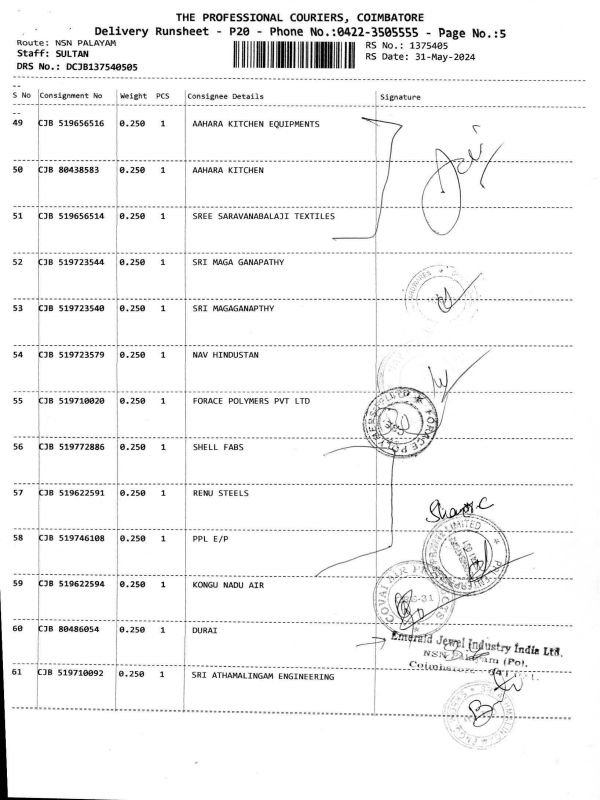 THE PROFESSIONAL COURIERS, COIMBATORE
Delivery Runsheet - P20 - Phone No.:0422-3505555 - Page No.:5
Route: NSN PALAYAM
RS No.: 1375405
Staff: SULTAN
RS Date: 31-May-2024
DRS No.: DCJB137540505
S No Consignment No Weight PCS Consignee Details Signature
49 CJB 519656516 0.250 1 AAHARA KITCHEN EQUIPMENTS
50 CJB 80438583 0.250 1 AAHARA KITCHEN
51 CJB 519656514 0.250 1 SREE SARAVANABALAJI TEXTILES
52 CJB 519723544 0.250 1 SRI MAGA GANAPATHY
53 CJB 519723540 0.250 1 SRI MAGAGANAPTHY
54 CJB 519723579 0.250 1 NAV HINDUSTAN
55 CJB 519710020 0.250 1 FORACE POLYMERS PVT LTD
FORACE POLYMERS
56 CJB 519772886 0.250 1 SHELL FABS
57 CJB 519622591 0.250 1 RENU STEELS
58 CJB 519746108 0.250 1 PPL E/P
LIMITED
59 CJB 519622594 0.250 1 KONGU NADU AIR
COVAI AIR
60 CJB 80486054 0.250 1 DURAI
Emerald Jewel Industry India Ltd.
NSN Palayam (Po).
Coimbatore
61 CJB 519710092 0.250 1 SRI ATHAMALINGAM ENGINEERING